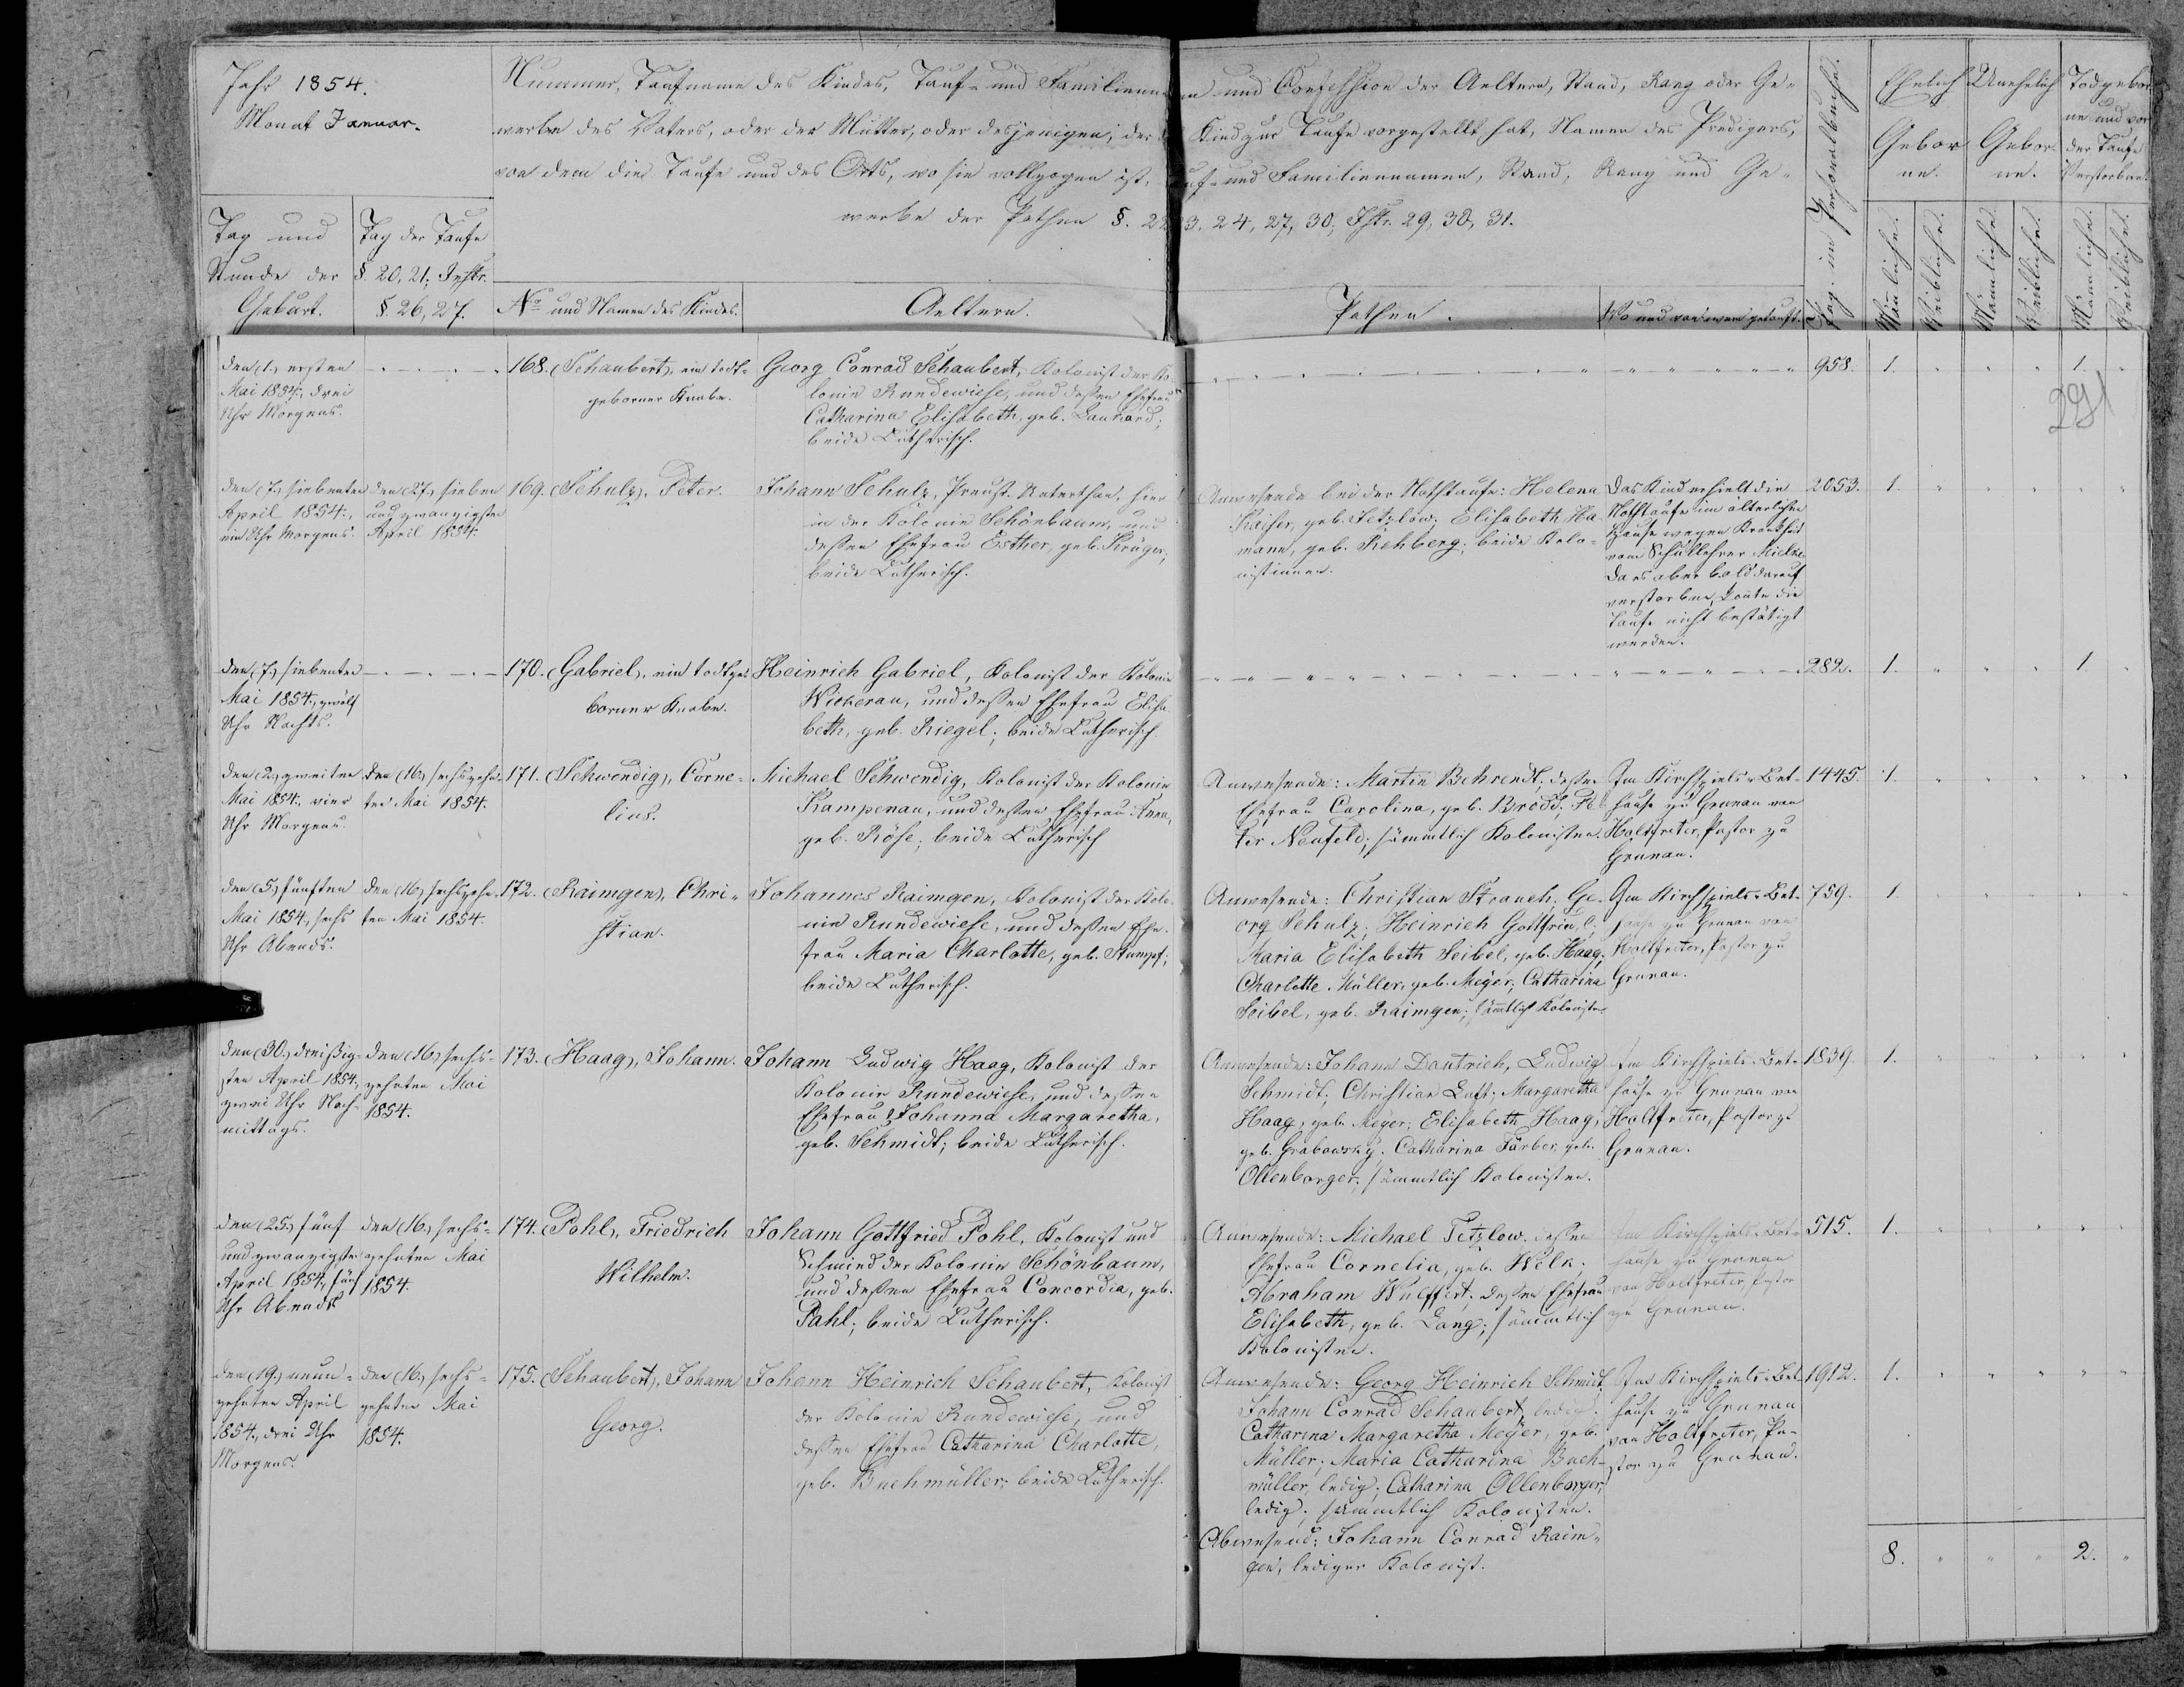 Jahr 1854.
Monat Januar.
Tag und
Stunde der
Geburt.
Tag der Taufe
§. 20, 21; Instr.
§. 26, 27.
Nummer, Taufname des Kindes, Tauf- und Familienna en und Confession der Aeltern, Stand, Rang oder Ge-
werbe des Vaters, oder der Mutter, oder desjenigen, der d Kind zur Taufe vorgestellt hat, Namen des Predigers,
von dem die Taufe und des Orts, wo sie vollzogen ist, auf- und Familiennamen, Stand, Rang und Ge-
werbe der Pathen §. 22 3. 24, 27, 30; Istr. 29, 30, 31.
No und Namen des Kindes.
Aeltern.
Pathen.
Wo und von wem getauft.
Pag. im Personalbuche.
Ehelich
Gebor
ne.
Unehelich
Gebor
ne.
Todgebor
ne und vor
der Taufe
Verstorbene.
Männliche.
Weibliche.
Männliche.
Weibliche.
Männliche.
Weibliche.
den (1.) ersten
Mai 1854., drei
Uhr Morgens.
168. (Schaubert), ein todt-
geborner Knabe.
Georg Conrad Schaubert, Kolonist der Ko-
lonie Rundewiese, und dessen Ehefrau
Catharina Elisabeth, geb. Lauhard;
beide Lutherisch.
958. 1. 1.
291
den (7.) siebenten
April 1854.,
ein Uhr Morgens.
den (27.) sieben
und zwanzigsten
April 1854.
169. (Schulz), Peter.
Johann Schulz, Preuß. Unterthan, hier
in der Kolonie Schönbaum, und
dessen Ehefrau Esther, geb. Krüger;
beide Lutherisch.
Anwesende bei der Nothtaufe: Helena
Kaiser, geb. Tetzlow; Elisabeth Ha-
mann, geb. Rehberg; beide Kolo-
nistinnen.
Das Kind erhielt die
Nothtaufe im älterlichen
Hause wegen Krankheit
vom Schullehrer Mielke
da es aber bald darauf
verstorben, konnte die
Taufe nicht bestätigt
werden.
2053. 1.
den (7.) siebenten
Mai 1854., zwölf
Uhr Nachts.
170. (Gabriel), ein todtge-
borner Knabe.
Heinrich Gabriel, Kolonist der Kolonie
Wickerau, und dessen Ehefrau Elisa-
beth, geb. Riegel; beide Lutherisch
282. 1. 1.
den (2.) zweiten
Mai 1854., vier
Uhr Morgens.
den (16.) sechszehn-
ten Mai 1854.
171. (Schwendig), Corne-
lius.
Michael Schwendig, Kolonist der Kolonie
Kampenau, und dessen Ehefrau Anna,
geb. Röse; beide Lutherisch
Anwesende: Martin Behrendt; dessen
Ehefrau Carolina, geb. Brodd; Pe-
ter Neufeld; sämmtlich Kolonisten.
Im Kirchspiels-Bet-
hause zu Grunau von
Holtfreter, Pastor zu
Grunau.
1445. 1.
den (5.) fünften
Mai 1854., sechs
Uhr Abends.
den (16.) sechszehn-
ten Mai 1854.
172. (Raimgen), Chri-
stian.
Johannes Raimgen, Kolonist der Kolo-
nie Rundewiese, und dessen Ehe-
frau Maria Charlotte, geb. Stumpf;
beide Lutherisch.
Anwesende: Christian Strauch; Ge-
org Schulz; Heinrich Gottfried;
Maria Elisabeth Seibel, geb. Haag;
Charlotte Müller, geb. Meÿer; Catharina
Seibel, geb. Raimgen; sämmtlich Kolonisten
Im Kirchspiels-Bet-
hause zu Grunau von
Holtfreter, Pastor zu
Grunau.
759. 1.
den (30.) dreißig-
sten April 1854.,
zwei Uhr Nach-
mittags.
den (16.) sechs-
zehnten Mai
1854.
173. (Haag), Johann.
Johann Ludwig Haag, Kolonist der
Kolonie Rundewiese, und dessen
Ehefrau Johanna Margaretha,
geb. Schmidt; beide Lutherisch.
Anwesende: Johann Dautrich, Ludwig
Schmidt; Christian Luft; Margaretha
Haag, geb. Meÿer; Elisabeth Haag,
geb. Grabowskÿ; Catharina Färber, geb.
Ollenborger; sämmtlich Kolonisten.
Im Kirchspiels-Bet-
hause zu Grunau von
Holtfreter, Pastor zu
Grunau.
1839. 1.
den (25.) fünf
und zwanzigsten
April 1854., fünf
Uhr Abends
den (16.) sechs-
zehnten Mai
1854.
174. (Pohl), Friedrich
Wilhelm.
Johann Gottfried Pohl, Kolonist und
Schmied der Kolonie Schönbaum,
und dessen Ehefrau Concordia, geb.
Pahl; beide Lutherisch.
Anwesende: Michael Tetzlow, dessen
Ehefrau Cornelia, geb. Wölk;
Abraham Wulffert; dessen Ehefrau
Elisabeth, geb. Lang; sämmtlich
Kolonisten.
Im Kirchspiels-Bet-
hause zu Grunau
von Holtfreter, Pastor
zu Grunau.
515. 1.
den (19.) neun-
zehnten April
1854., drei Uhr
Morgens.
den (16.) sechs-
zehnten Mai
1854.
175. (Schaubert), Johann
Georg.
Johann Heinrich Schaubert, Kolonist
der Kolonie Rundewiese, und
dessen Ehefrau Catharina Charlotte,
geb. Buchmüller; beide Lutherisch.
Anwesende: Georg Heinrich Schmidt;
Johann Conrad Schaubert, ledig;
Catharina Margaretha Meÿer, geb.
Müller; Maria Catharina Buch-
müller, ledig; Catharina Ollenborger,
ledig; sämmtlich Kolonisten.
Abwesend: Johann Conrad Raim-
gen, lediger Kolonist.
Im Kirchspiels-Bet-
hause zu Grunau
von Holtfreter, Pa-
stor zu Grunau.
1912. 1.
8. 2.